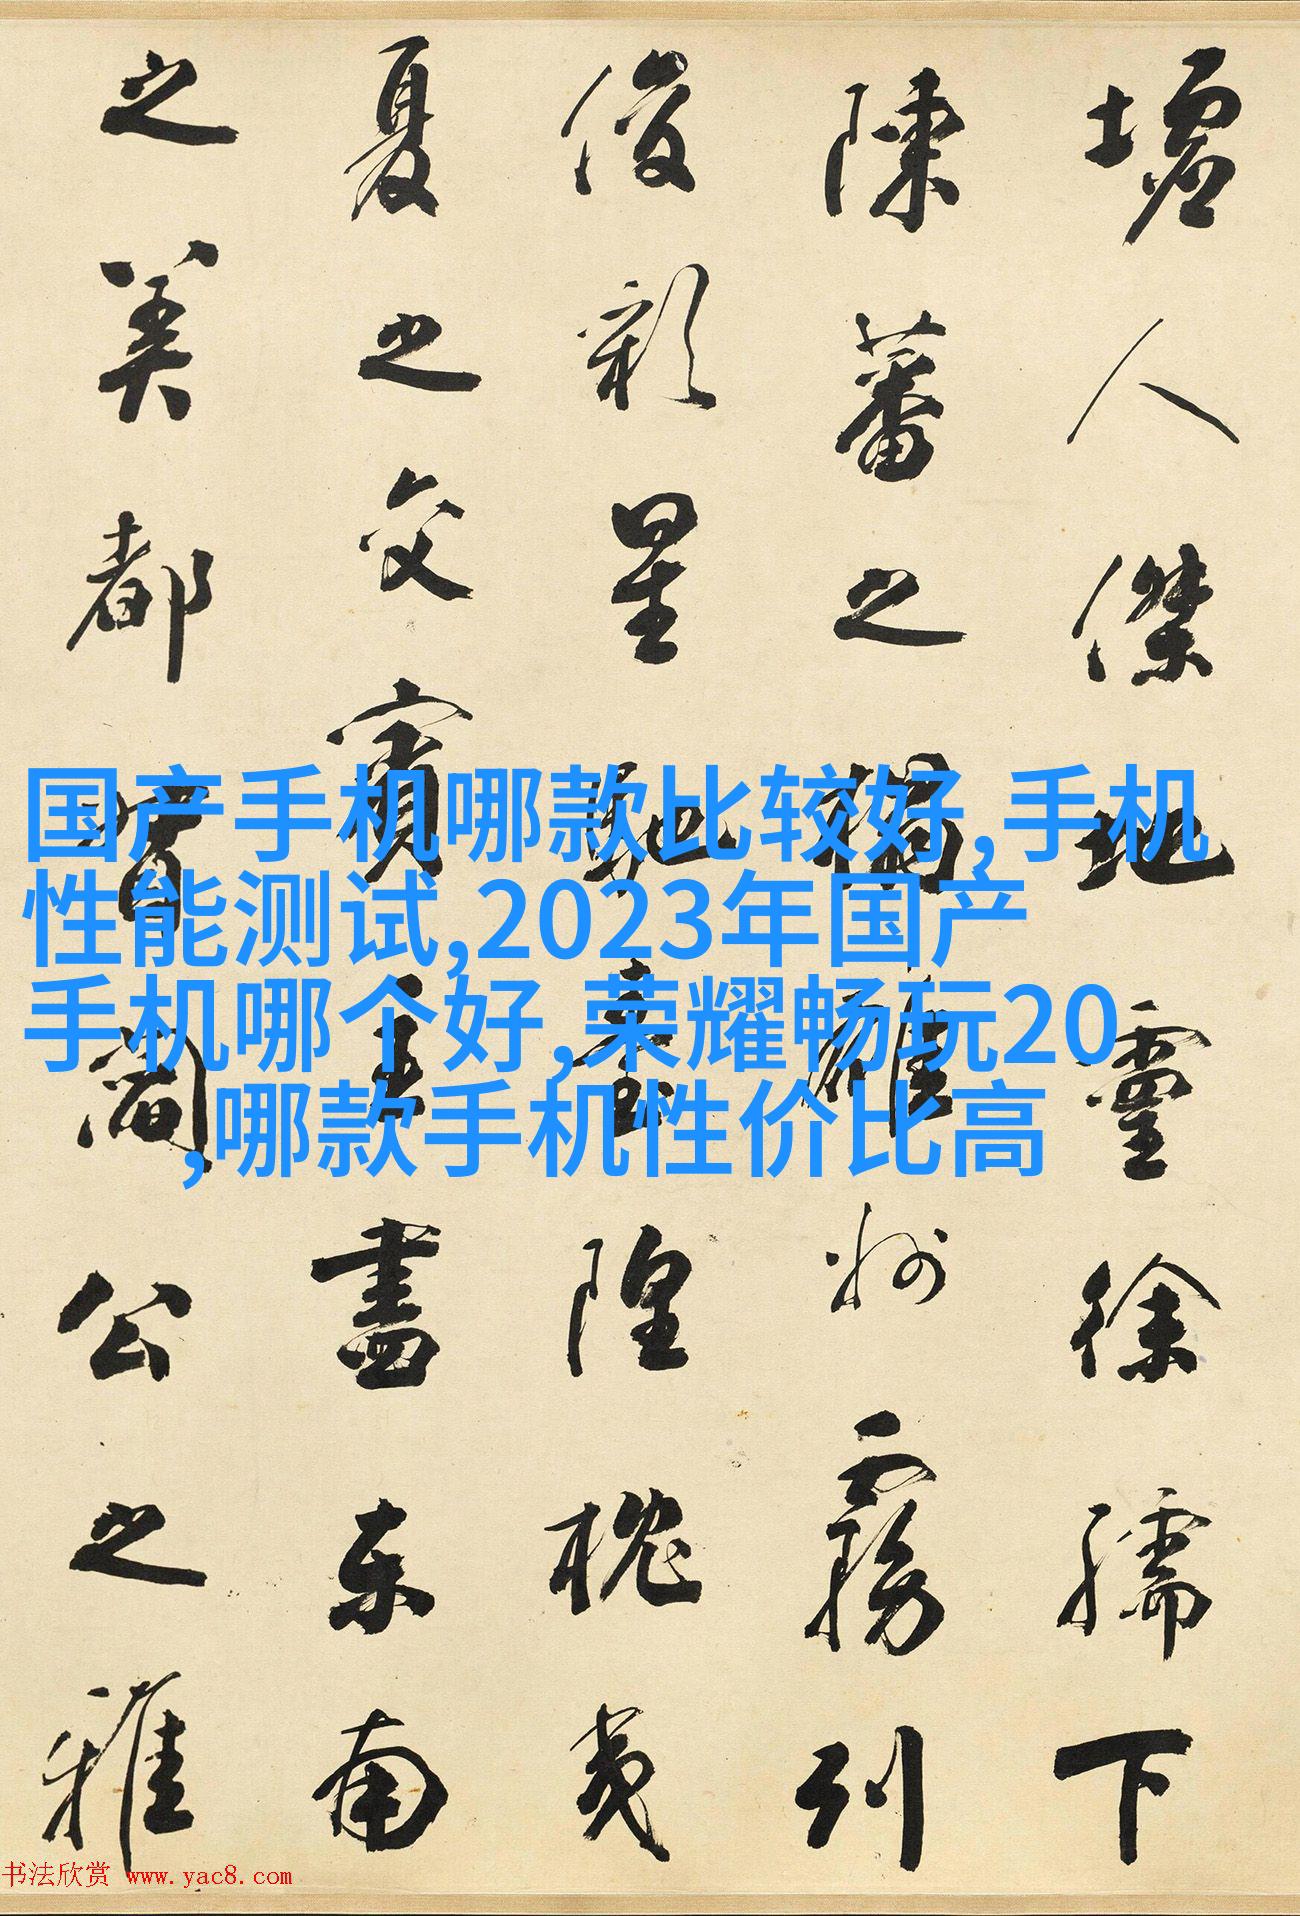 墟人傑地靈徐孺下
陳蕃之榻雄州霧列
俊彩星馳臺隍枕夷
夏之交賓主盡東南
之美都督閻公之雅
国产手机哪款比较好,手机
性能测试,2023年国产
手机哪个好,荣耀畅玩20
,哪款手机性价比高
书法欣赏 www.yac8.com